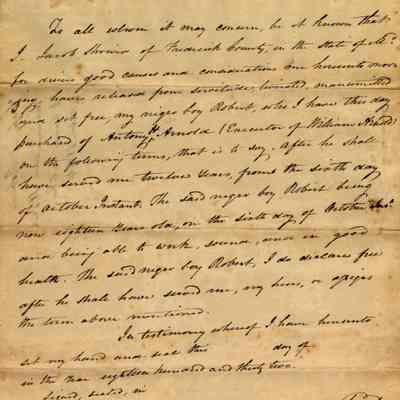 To all whom it may concern, be it known that
I Jacob Shriver of Frederick County, in the state of Md
for divers good causes and considerations me hereunto mov
ing, have released from servitude, liberated, manumitted
and set free, my negro boy Robert, who I have this day
purchased of Antony H. Arnold (Executor of William Arnold)
on the following terms, that is to say. After he shall
have served me twelve Years, from the sixth day
of October Instant. The said negro boy Robert being
now eighteen Years old, on the sixth day of October
and being able to work, sound, and in good
health. The said negro boy Robert, I do declare free
after he shall have served me, my heirs, or assigns
the term above mentioned.
In testimony whereof I have hereunto
set my hand and seal this day of
in the Year eighteen hundred and thirty two.
Signed, sealed, in